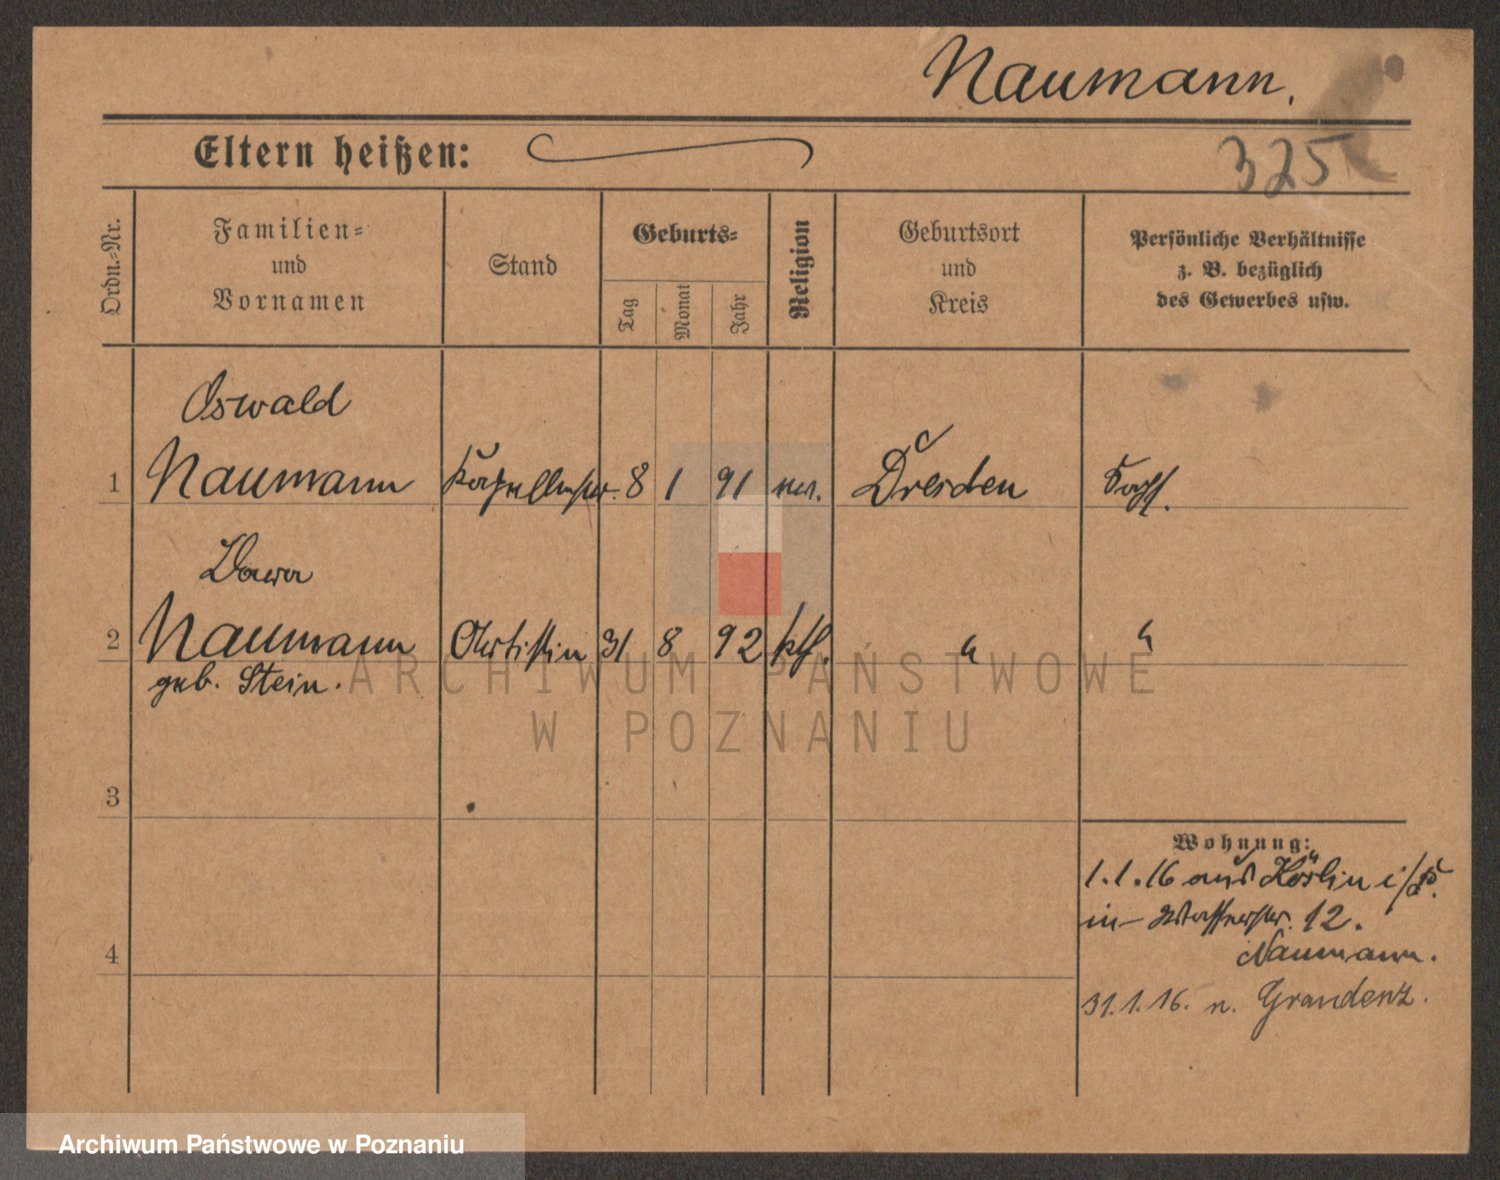 Naumann.
325
Eltern heißen:
Ordn.-Nr.
Familien-
und
Vornamen
Stand
Geburts-
Tag
Monat
Jahr
Religion
Geburtsort
und
Kreis
Persönliche Verhältnisse
z. B. bezüglich
des Gewerbes usw.
Oswald
1 Naumann Kapellmstr. 8 1 91 Dresden
2 Naumann Artistin 31 8 92 kth. "  "
geb. Stein.
3
4
Wohnung:
1.1.16 aus Körlin i/P.
in Wasserstr. 12.
Naumann.
31.1.16. n. Graudenz.
ARCHIWUM PAŃSTWOWE
W POZNANIU
Archiwum Państwowe w Poznaniu